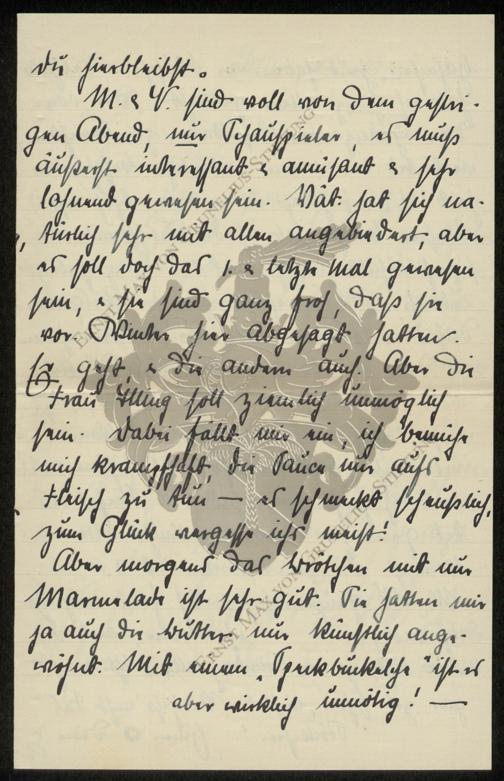 du hierbleibst.
M. & V. sind voll von dem gestri-
gen Abend, nur Schauspieler, es muß
äußerst interessant & amüsant & sehr
lohnend gewesen sein. Vat. hat sich na-
türlich sehr mit allen angebiedert, aber
es soll doch das 1. & letzte Mal gewesen
sein, & sie sind ganz froh, daß sie
vor. Winter hier abgesagt hatten.
geht, & die andern auch. Aber die
Frau Illing soll ziemlich unmöglich
sein. Dabei fällt mir ein, ich bemühe
mich krampfhaft, die Sauce nur aufs
Fleisch zu tun — es schmeckt scheußlich,
zum Glück vergesse ichs meist!
Aber morgens das Brötchen mit nur
Marmelade ist sehr gut. Sie hatten mir
ja auch die Butter nur künstlich ange-
wöhnt. Mit einem „Speckbückelche" ist es
aber wirklich unnötig! —
ERNST MAX VON GRUNELIUS-STIFTUNG
ERNST MAX VON GRUNELIUS-STIFTUNG